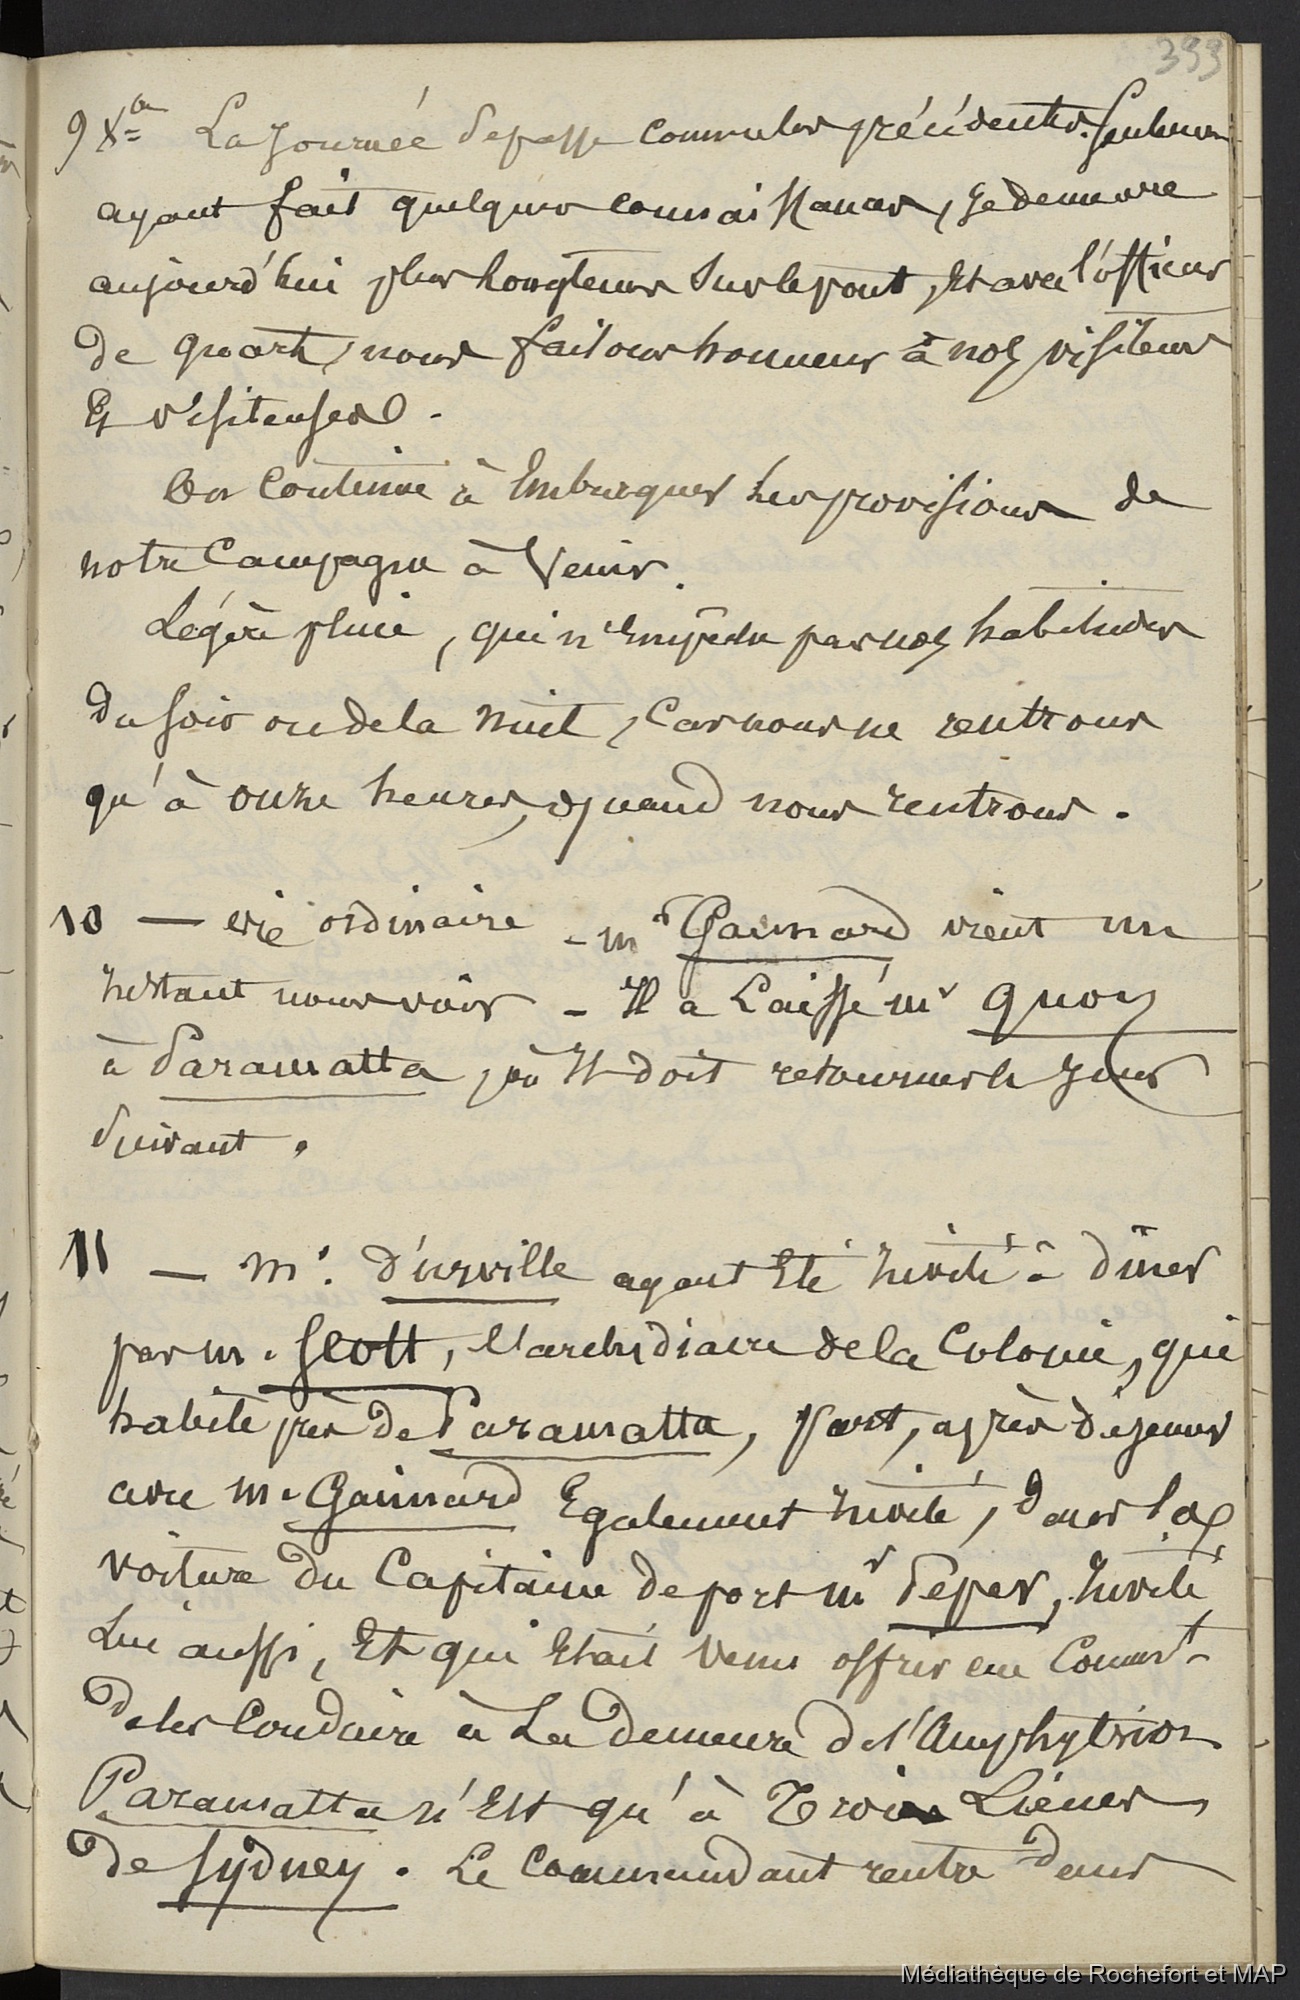 399
9 Xbre La journée se passe comme les précédentes. Seulement
ayant fait quelques connaissances, je demeure
aujourd'hui plus longtems sur le pont, et avec l'officier
de quart, nous faisons honneur à nos visiteurs
Et visiteuses.
On continue à Embarquer les provisions de
notre Campagne à Venir.
Légère pluie, qui n'Empêche pas nos habitudes
du soir ou de la nuit, car nous ne rentrons
qu'à onze heures, quand nous rentrons.
10 — vie ordinaire - mr Gaimard vient un
instant nous voir - Il a Laissé mr Quoy
à Paramatta, où Il doit retourner le jour
suivant.
11 — mr. d'urville ayant Eté invité à dîner
par m. Scott, l'archidiacre de la Colonie, qui
habite près de Paramatta, part, après déjeuner
avec mr Gaimard Egalement invité, dans la
voiture du Capitaine de port mr Peper, invité
Lui aussi, Et qui Etait Venu offrir au Commt
de les Conduire à La demeure de l'Amphytrion
Paramatta n'Est qu'à Trois Lieues
de Sydney. Le Commandant rentre dans
Médiathèque de Rochefort et MAP